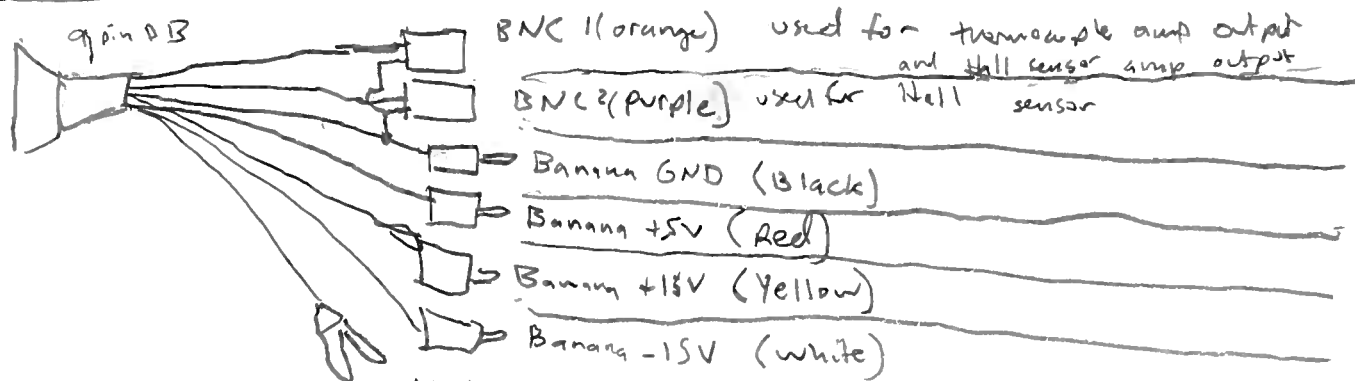 9 pin DB
BNC 1 (orange) used for thermocouple amp output
and Hall sensor amp output
BNC 2 (purple) used for Hall sensor
Banana GND (Black)
Banana +5V (Red)
Banana +15V (Yellow)
Banana -15V (white)